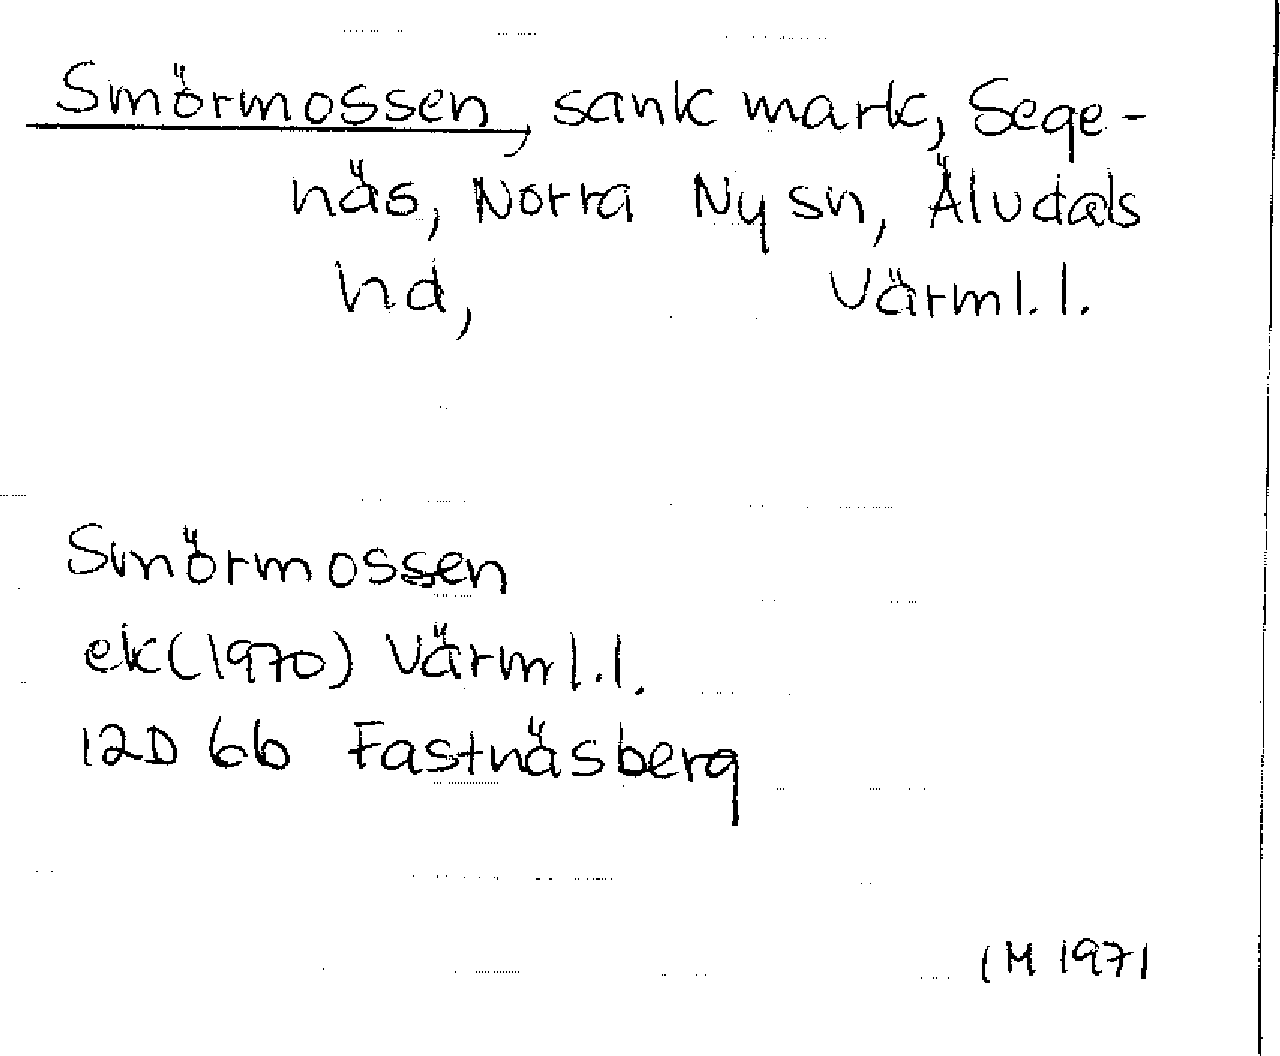 Smörmossen, sank mark, Sege-
näs, Norra Ny sn, Älvdals
hd, Värml. l.
Smörmossen
ek(1970) Värml. l.
12D 6b Fastnäsberg
IM 1971